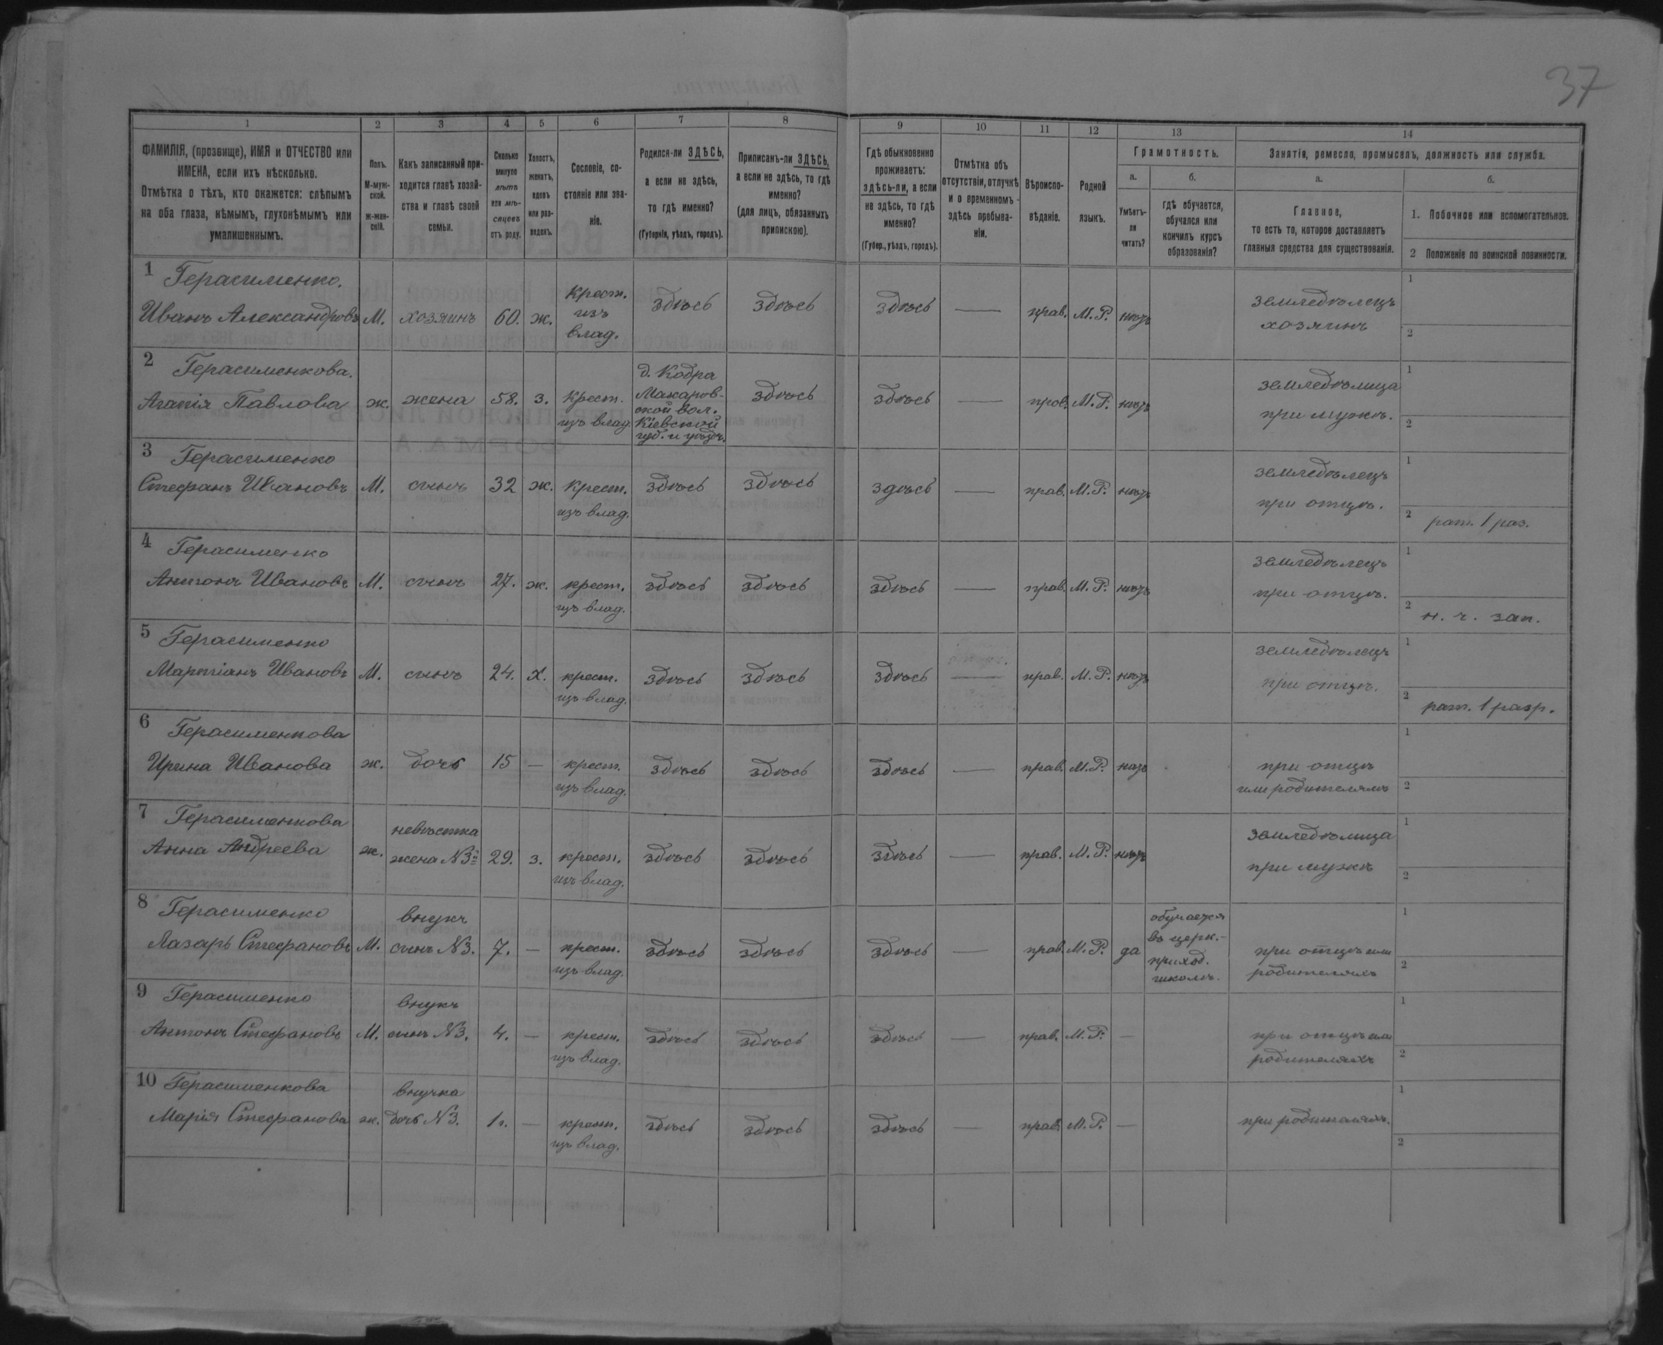 37
1 2 3 4 5 6 7 8 9 10 11 12 13 14
ФАМИЛІЯ, (прозвище), ИМЯ и ОТЧЕСТВО или
ИМЕНА, если ихъ нѣсколько.
Отмѣтка о тѣхъ, кто окажется: слѣпымъ
на оба глаза, нѣмымъ, глухонѣмымъ или
умалишеннымъ.
Полъ.
М-муж-
ской.
Ж-жен-
скій.
Какъ записанный при-
ходится главѣ хозяй-
ства и главѣ своей
семьи.
Сколько
минуло
лѣтъ
или мѣ-
сяцевъ
отъ роду.
Холостъ,
женатъ,
вдовъ
или раз-
веденъ.
Сословіе, со-
стояніе или зва-
ніе.
Родился-ли ЗДѢСЬ,
а если не здѣсь,
то гдѣ именно?
(Губернія, уѣздъ, городъ).
Приписанъ-ли ЗДѢСЬ,
а если не здѣсь, то гдѣ
именно?
(для лицъ, обязанныхъ
припискою).
Гдѣ обыкновенно
проживаетъ:
здѣсь-ли, а если
не здѣсь, то гдѣ
именно?
(Губер., уѣздъ, городъ).
Отмѣтка объ
отсутствіи, отлучкѣ
и о временномъ
здѣсь пребыва-
ніи.
Вѣроиспо-
вѣданіе.
Родной
языкъ.
Грамотность.
а.
Умѣетъ-
ли
читать?
б.
гдѣ обучается,
обучался или
кончилъ курсъ
образованія?
Занятія, ремесло, промыселъ, должность или служба.
а.
Главное,
то есть то, которое доставляетъ
главныя средства для существованія.
б.
1. Побочное или вспомогательное.
2 Положеніе по воинской повинности.
1 Герасименко.
Иванъ Александровъ М. хозяинъ 60. ж. крест. изъ влад. здѣсь здѣсь здѣсь — прав. М.Р. нѣтъ земледѣлецъ хозяинъ 1 2
2 Герасименкова.
Агапія Павлова ж. жена 58. з. крест. изъ влад. д. Кодра Макаров-
ской вол.
Кіевской
губ. и уѣзд. здѣсь здѣсь — прав. М.Р. нѣтъ земледѣлица при мужѣ. 1 2
3 Герасименко
Стефанъ Ивановъ М. сынъ 32 ж. крест. изъ влад. здѣсь здѣсь здѣсь — прав. М.Р. нѣтъ земледѣлецъ при отцѣ. 1 2 рат. 1 раз.
4 Герасименко
Антонъ Ивановъ М. сынъ 27. ж. крест. изъ влад. здѣсь здѣсь здѣсь — прав. М.Р. нѣтъ земледѣлецъ при отцѣ. 1 2 н. ч. зап.
5 Герасименко
Мартіанъ Ивановъ М. сынъ 24. х. крест. изъ влад. здѣсь здѣсь здѣсь — прав. М.Р. нѣтъ земледѣлецъ при отцѣ. 1 2 рат. 1 разр.
6 Герасименкова
Ирина Иванова ж. дочь 15 — крест. изъ влад. здѣсь здѣсь здѣсь — прав. М.Р. нѣтъ при отцѣ или родителяхъ 1 2
7 Герасименкова
Анна Андреева ж. невѣстка жена №3 29. з. крест. изъ влад. здѣсь здѣсь здѣсь — прав. М.Р. нѣтъ земледѣлица при мужѣ 1 2
8 Герасименко
Лазарь Стефановъ М. внукъ сынъ №3. 7. — крест. изъ влад. здѣсь здѣсь здѣсь — прав. М.Р. да обучается
въ церк.-
приход.
школѣ. при отцѣ или родителяхъ 1 2
9 Герасименко
Антонъ Стефановъ М. внукъ сынъ №3. 4. — крест. изъ влад. здѣсь здѣсь здѣсь — прав. М.Р. — при отцѣ или родителяхъ 1 2
10 Герасименкова
Марія Стефанова ж. внучка дочь №3. 1. — крест. изъ влад. здѣсь здѣсь здѣсь — прав. М.Р. — при родителяхъ. 1 2